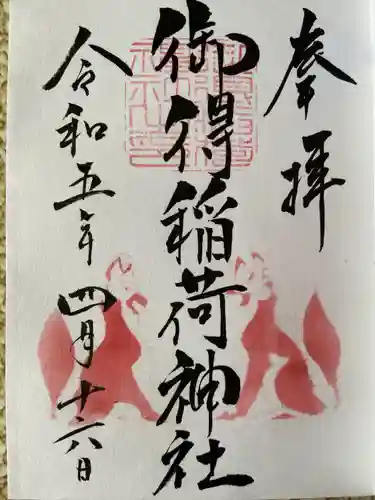 奉拝
御得稲荷神社
令和五年四月十六日